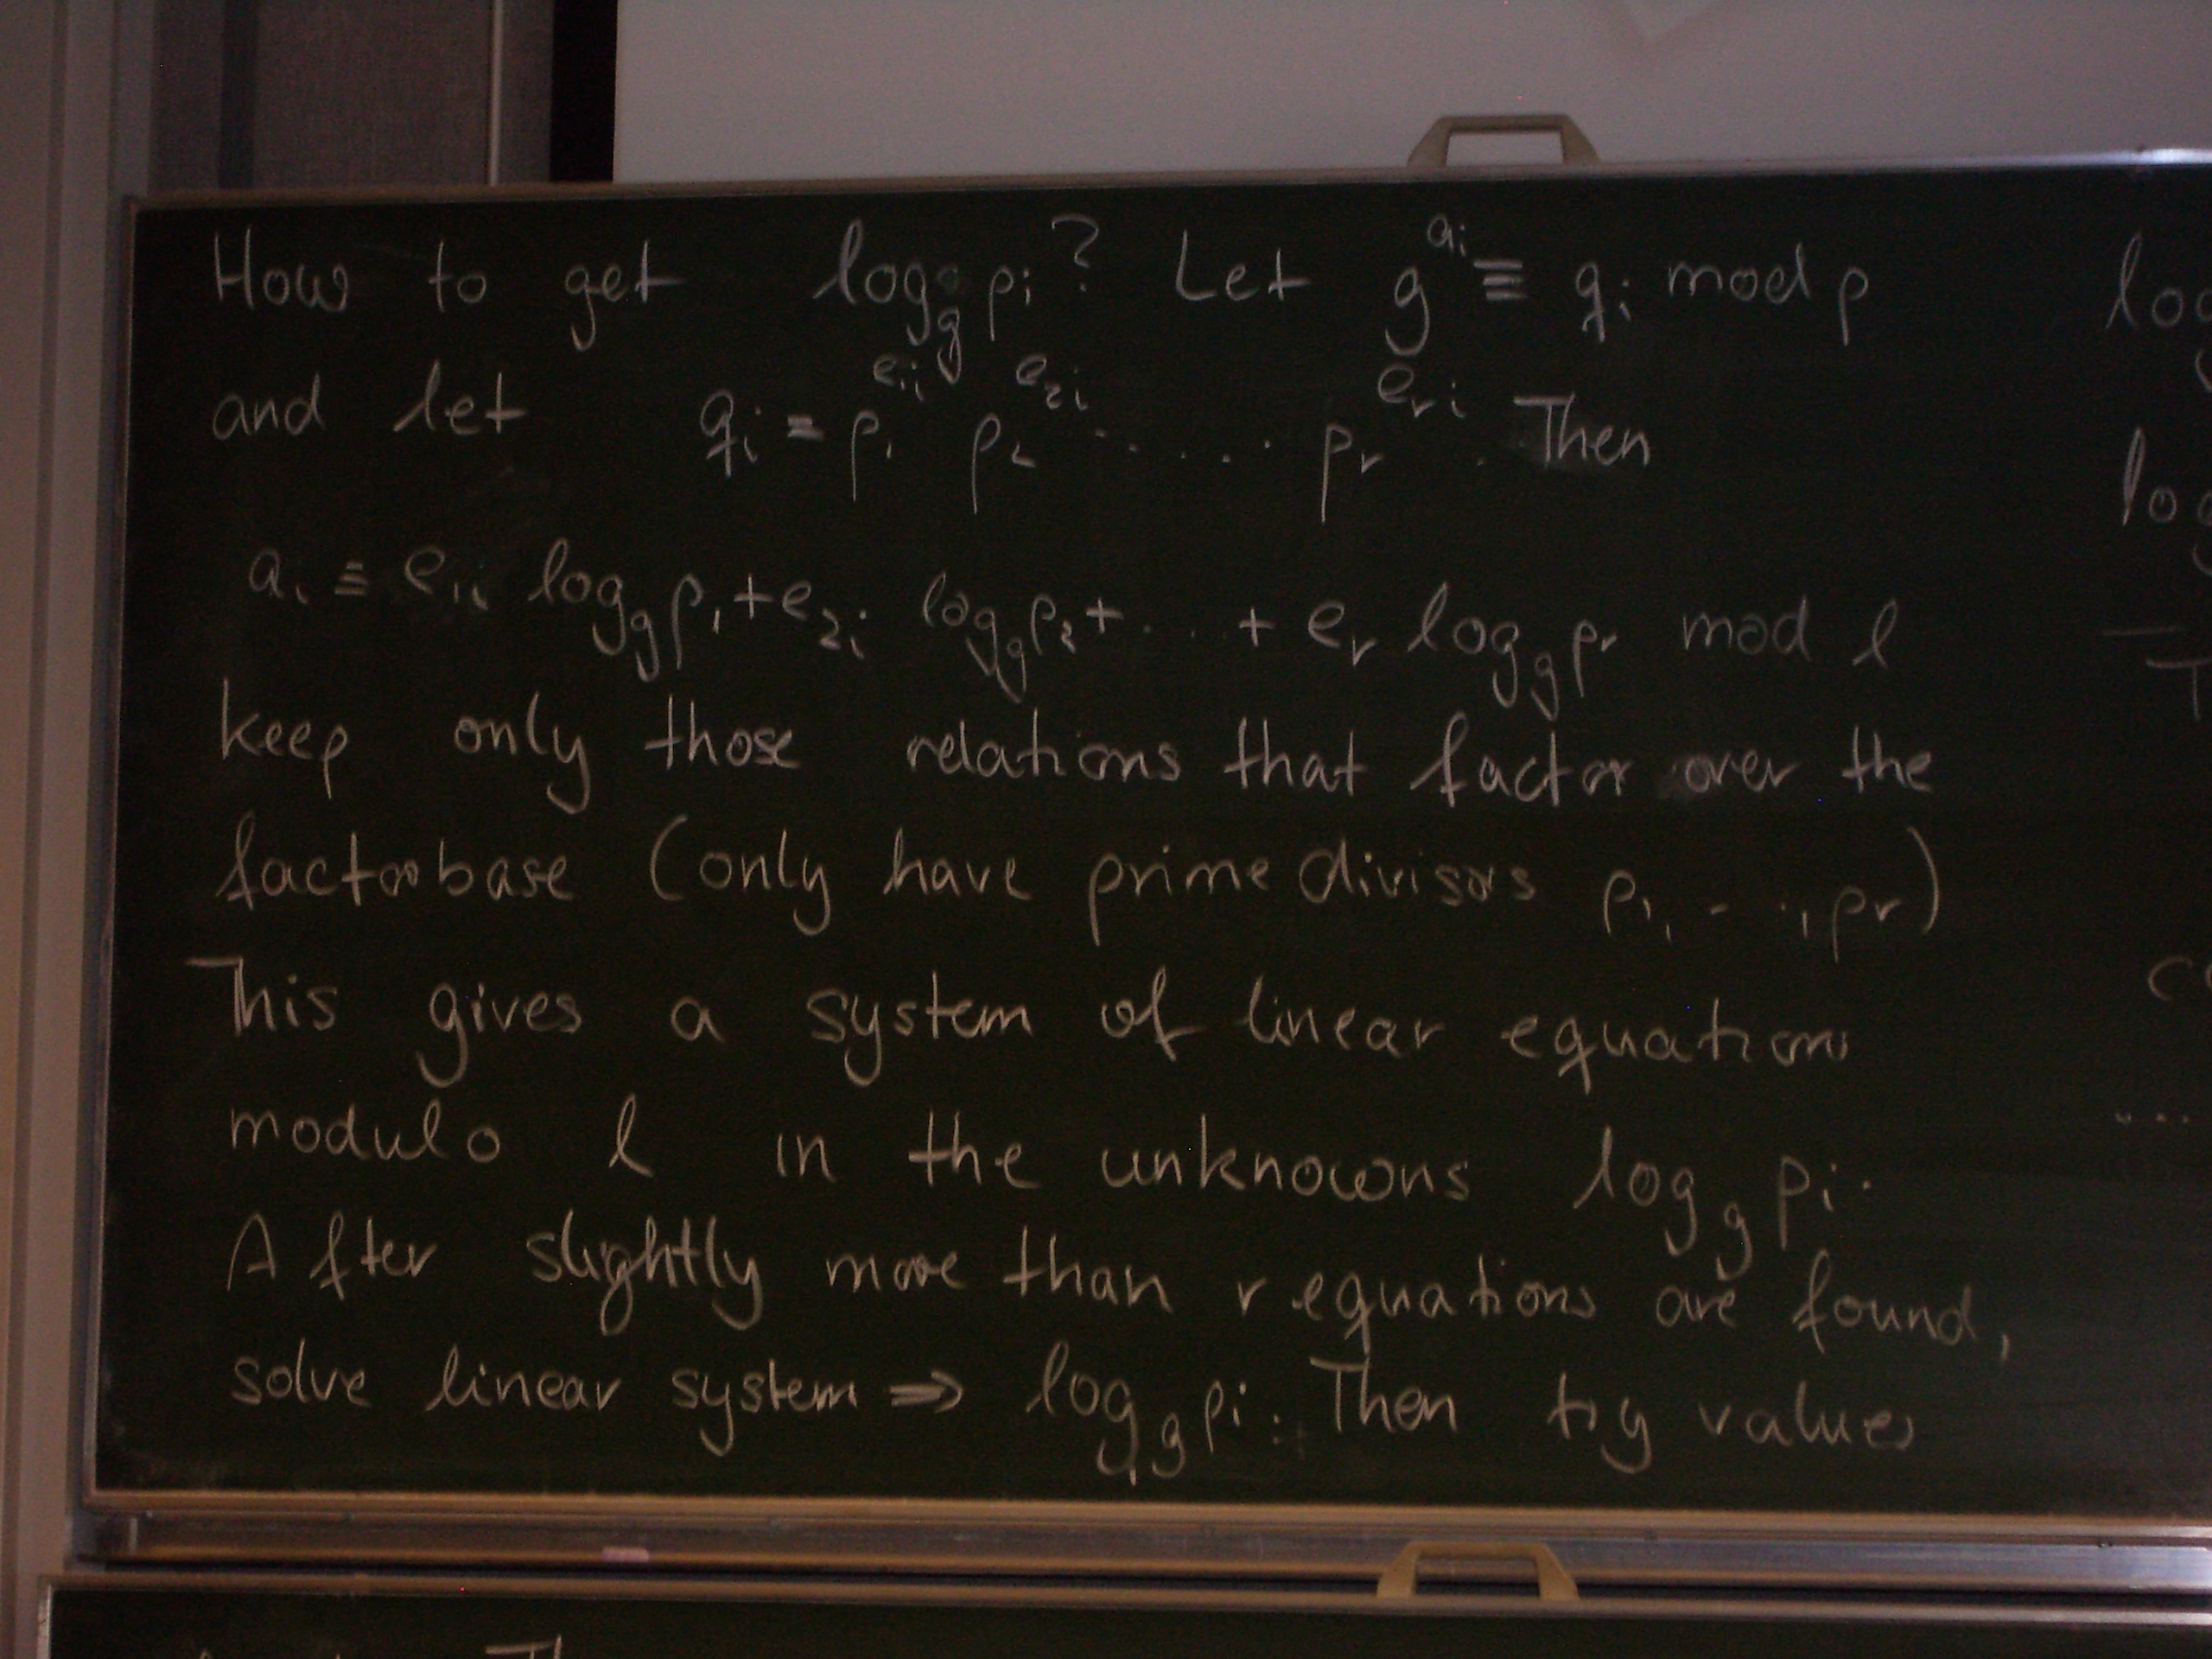 How to get log_g p_i? Let g^{a_i} ≡ q_i mod p
and let q_i = p_1^{e_{1i}} p_2^{e_{2i}} ...... p_r^{e_{ri}}. Then
a_i ≡ e_{1i} log_g p_1 + e_{2i} log_g p_2 + ... + e_r log_g p_r mod l
keep only those relations that factor over the
factorbase (only have prime divisors p_1, ..., p_r)
This gives a system of linear equations
modulo l in the unknowns log_g p_i.
After slightly more than r equations are found,
solve linear system ⇒ log_g p_i. Then try values